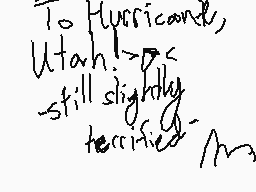 To Hurricane,
Utah! >.<
-still slightly
terrified-